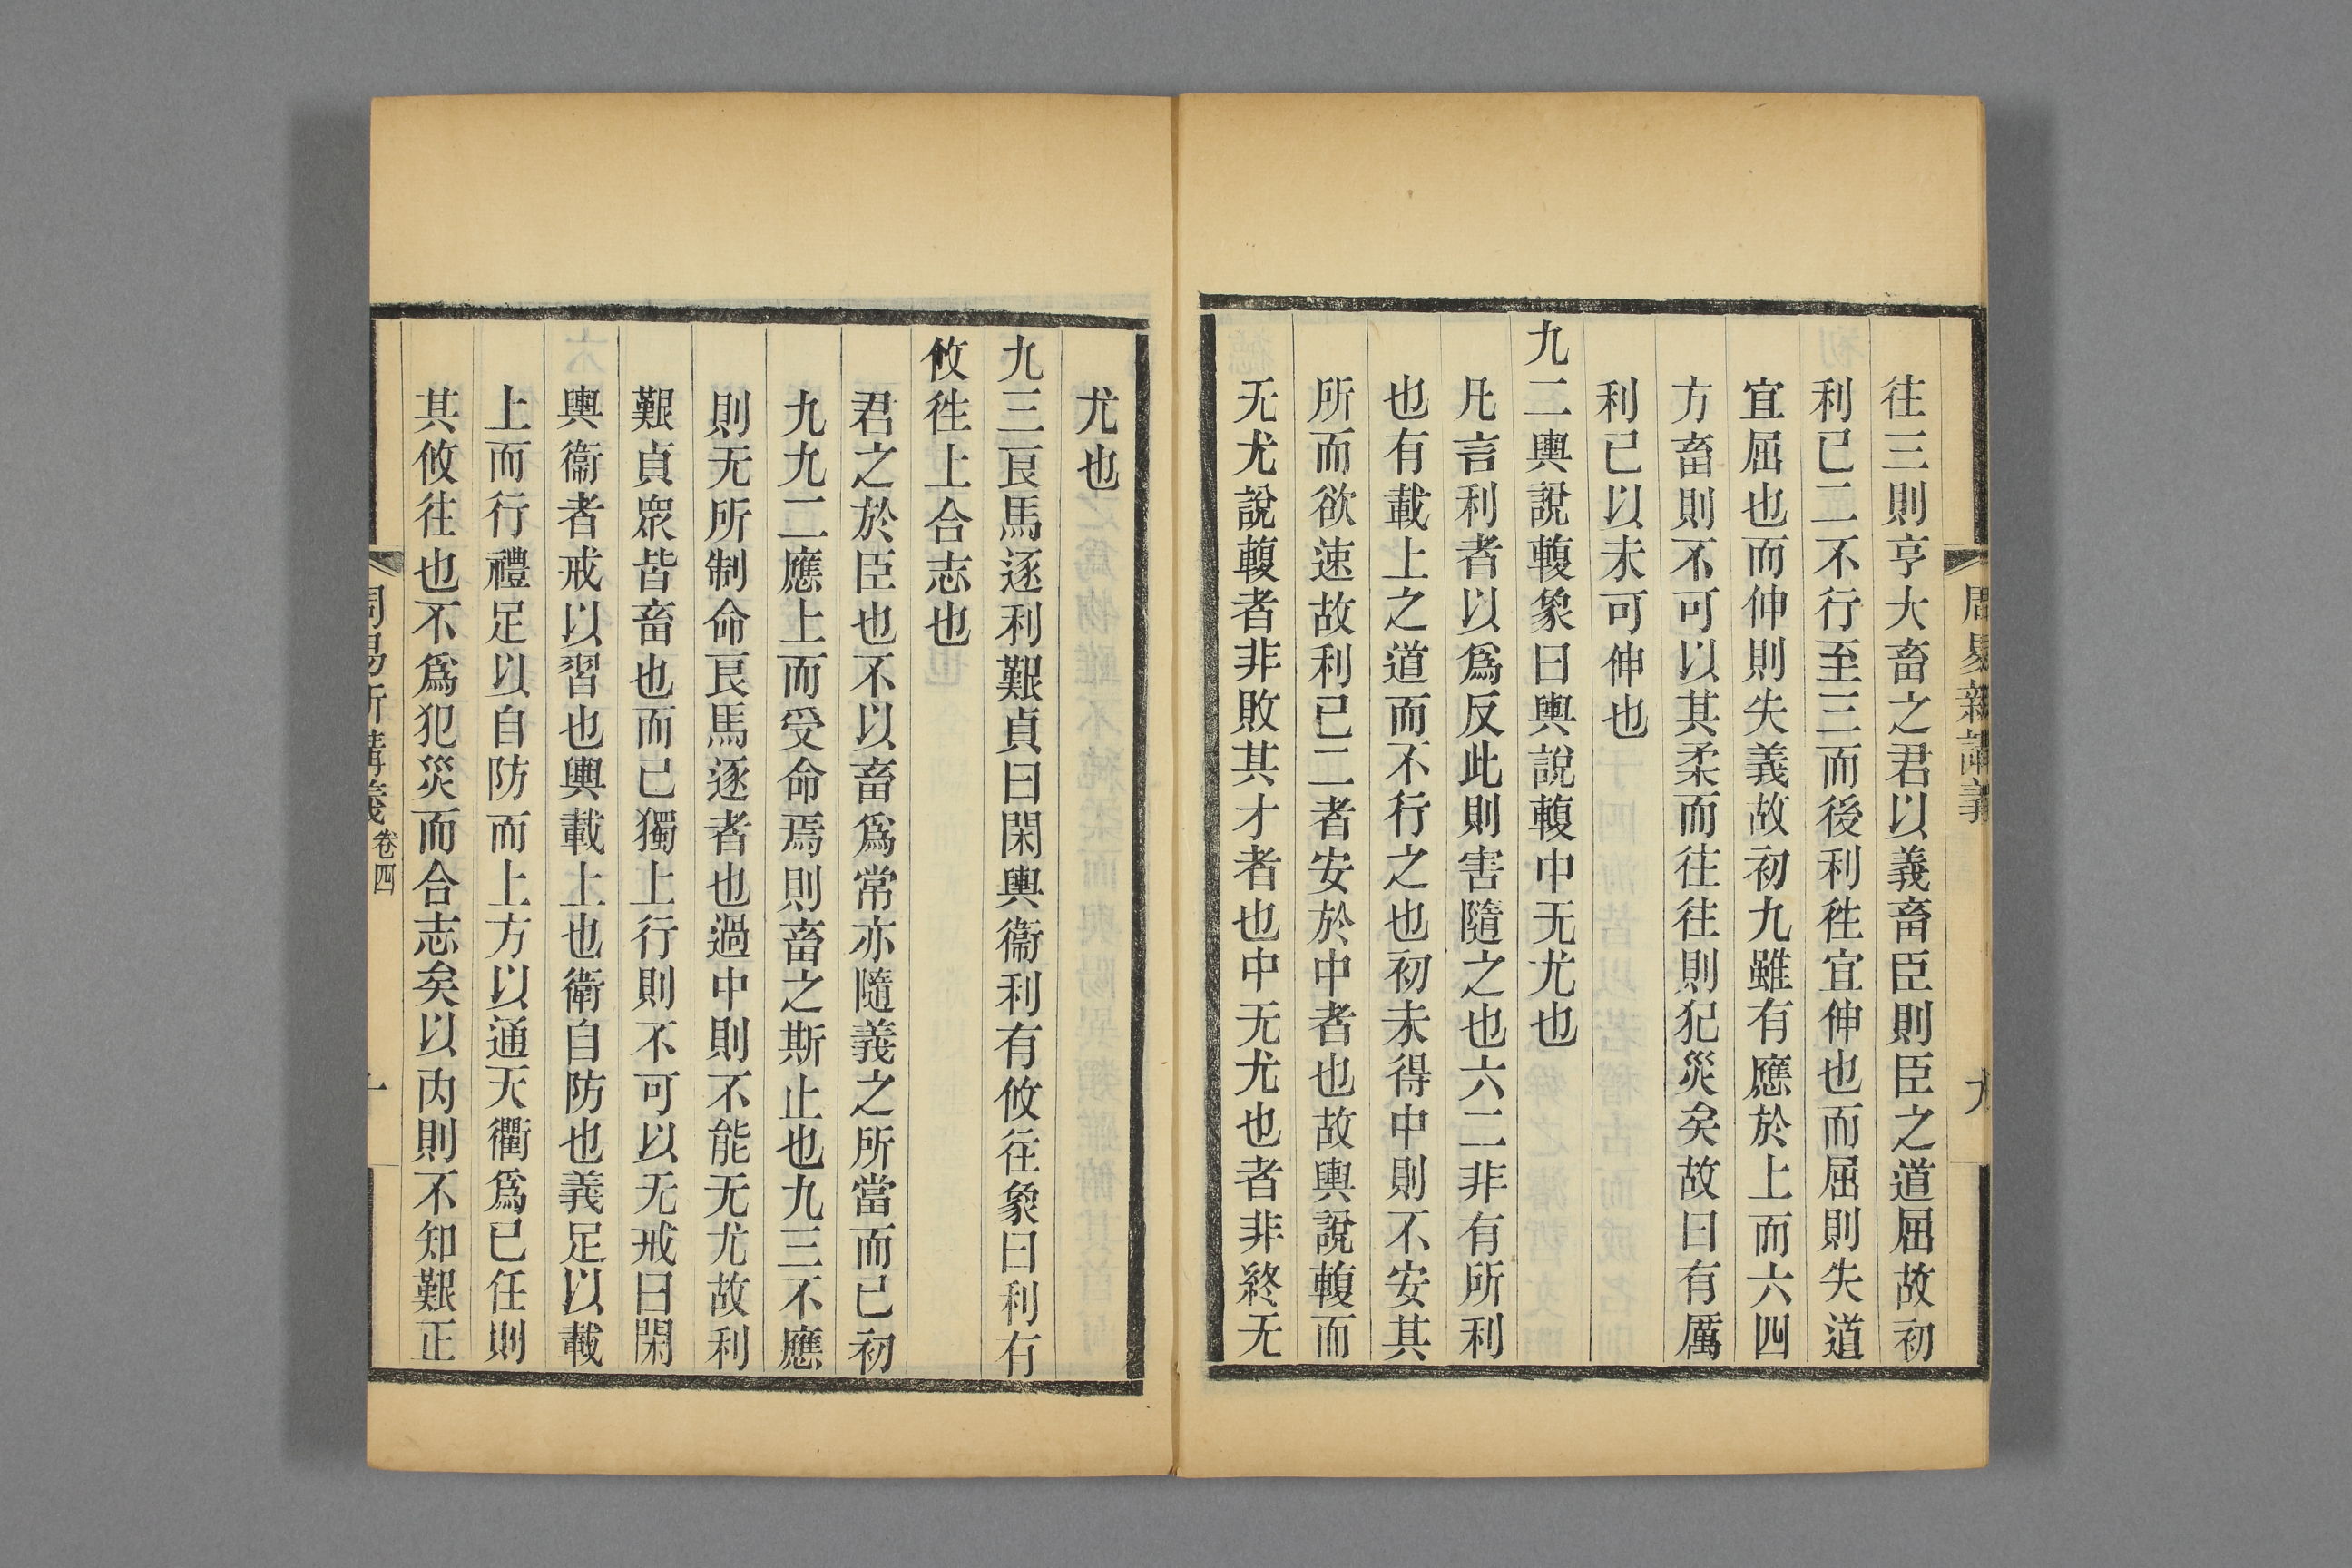 往三則亨大畜之君以義畜臣則臣之道屈故初
利已二不行至三而後利徃宜伸也而屈則失道
宜屈也而伸則失義故初九雖有應於上而六四
方畜則不可以其柔而往往則犯災矣故曰有厲
利已以未可伸也
九二輿說輹象曰輿說輹中无尤也
凡言利者以爲反此則害隨之也六二非有所利
也有載上之道而不行之也初未得中則不安其
所而欲速故利已二者安於中者也故輿說輹而
无尤說輹者非敗其才者也中无尤也者非終无
尤也
九三良馬逐利艱貞曰閑輿衞利有攸往象曰利有
攸徃上合志也
君之於臣也不以畜爲常亦隨義之所當而已初
九九二應上而受命焉則畜之斯止也九三不應
則无所制命良馬逐者也過中則不能无尤故利
艱貞眾皆畜也而已獨上行則不可以无戒曰閑
輿衞者戒以習也輿載上也衛自防也義足以載
上而行禮足以自防而上方以通天衢爲已任則
其攸往也不爲犯災而合志矣以内則不知艱正
周易新講義
九
周易新講義 卷四